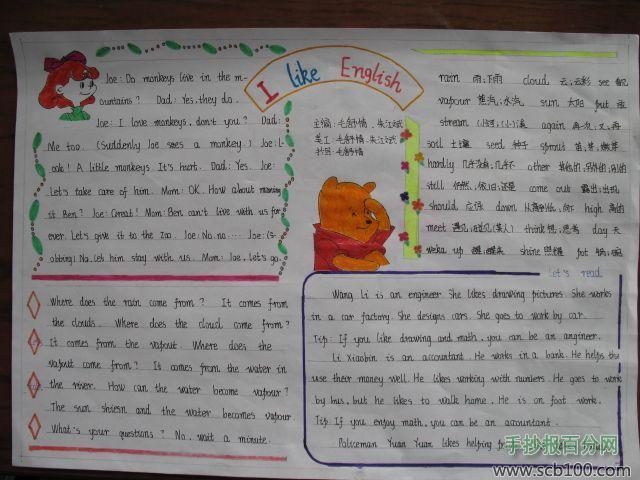 I like English
Joe: Do monkeys live in the m-
ountains? Dad: Yes, they do.
Joe: I love monkeys, don't you? Dad:
Me too. (Suddenly Joe sees a monkey.) Joe: L-
ook! A little monkeys It's hurt. Dad: Yes. Joe:
Let's take care of him. Mom: OK. How about naming
it Ben? Joe: Great! Mom: Ben can't live with us for
ever. Let's give it to the zoo. Joe: No. no.... Joe: (S-
obbing) No. Let him stay with us. Mom: Joe, let's go.
Where does the rain come from? It comes from
the clouds. Where does the cloud come from?
It comes from the vapout. Where does the
vapout come from? It comes from the water in
the river. How can the water become vapour?
The sun shiesn and the water becomes vapour
What's your questions? No, wait a minute.
主编:毛舒情、朱江斌
美工:毛舒情、朱江斌
书写:毛舒情
rain 雨;下雨 cloud 云;云彩 see 看见
vapour 蒸汽;水汽 sun 太阳 put 放
stream (小)河;(小)溪 again 再一次,又,再
soil 土壤 seed 种子 sprout 苗,芽,嫩芽
hardly 几乎没有;几乎不 other 其他的;另外的;别的
still 仍然,依旧;还是 come out 露出;出现
should 应该 down high 高的
meet 遇见 think 想;思考 day 天
weka up 醒;醒来 shine 照耀 pot 锅
Let's read
Wang Li is an engineer. She likes drawing pictures. She works
in a car factory. She designs cars. She goes to work by car.
Tip: If you like drawing and math, you can be an angineer.
Li Xiaobin is an accountant. He works in a bank. He helps the
use their money well. He likes working with numbers. He goes to work
by bus, but he likes to walk home. He is on foot work.
Tip: If you enjoy math, you can be an accountant.
Policeman Yuan Yuan likes helping
手抄报百分网
www.scb100.com